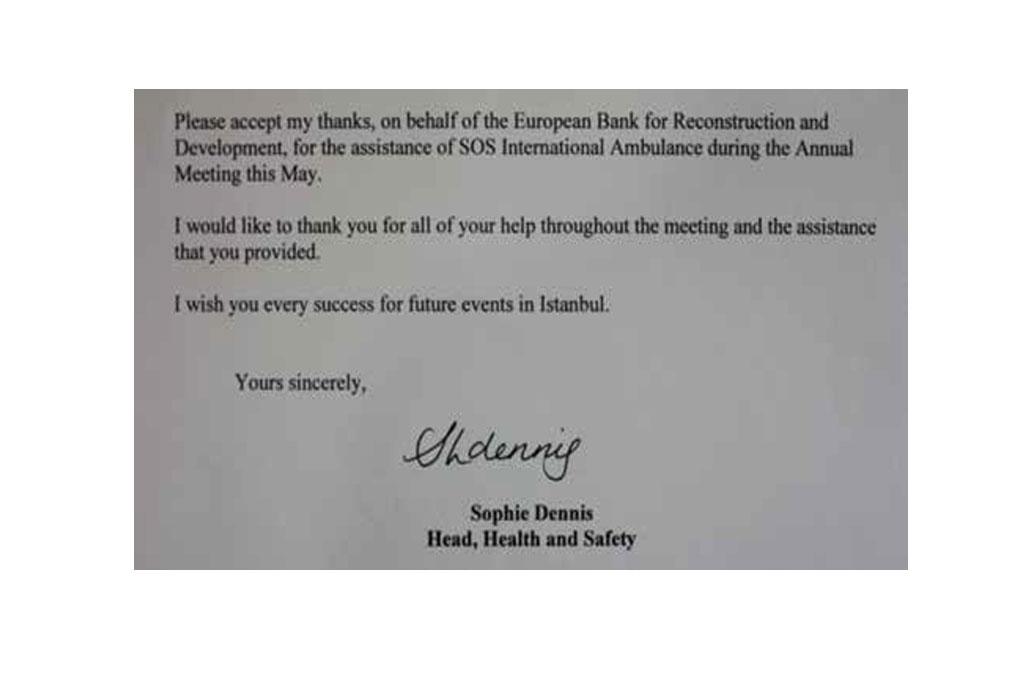 Please accept my thanks, on behalf of the European Bank for Reconstruction and
Development, for the assistance of SOS International Ambulance during the Annual
Meeting this May.
I would like to thank you for all of your help throughout the meeting and the assistance
that you provided.
I wish you every success for future events in Istanbul.
Yours sincerely,
Shdennis
Sophie Dennis
Head, Health and Safety